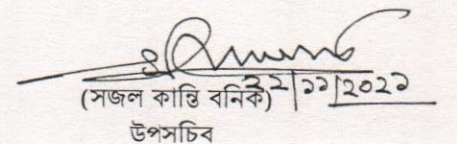 (সজল কান্তি বনিক) ২২|১১|২০২১
উপসচিব